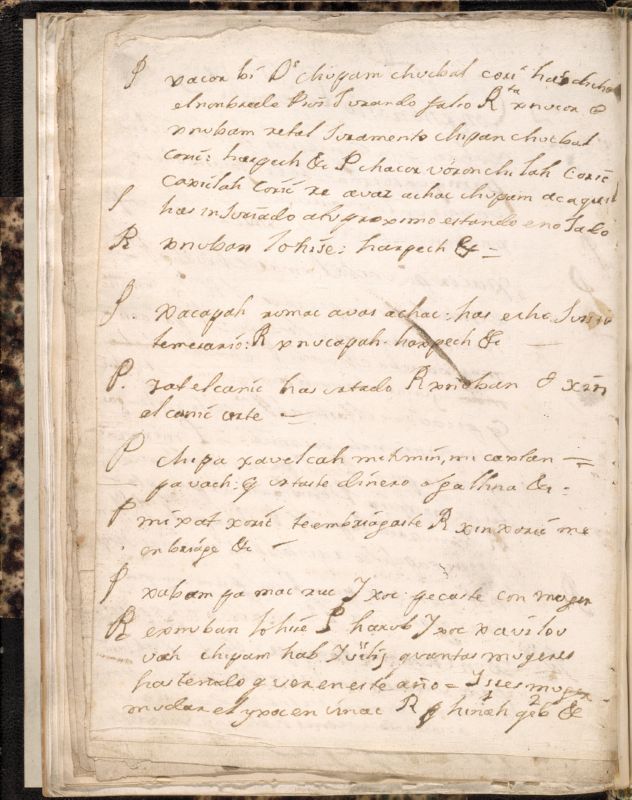 P xacox bi Ds chupam chucbal coric has dicho
el nonbre de Dios Jurando falso Rta xnucox o
xnubam retal Juramento chupan chucbal
coric: harpech &c P chacox voronchilah coric
caxilah coric re avas achac chupam acaquil
P has inJuriado atu proximo estando enojado
R xnuban lo hise: harpech &c =
P. xacapah rumac avas achac: has echo Juisio
temerario: R xnucapah. harpech &c —
P. xat elcanic has urtado R xnoban o xin
elcanic urte —
P chupa xavelcah mermin, mi caxlan =
pavach: q urtaste dinero o gallina &c.
P mixat xoric te embriagaste R xin xoric me
. enbriage &c —
P xabam pa mac ruc Jxoc: pecaste con muger
R exnuban lo hise P harub Jxoc xavilou
vach chipam hab Juli quantas mugeres
has tenido q ver en este año = Jsi es muger
mudar el yxoc en vinac R hinah 1 geb 2 &c